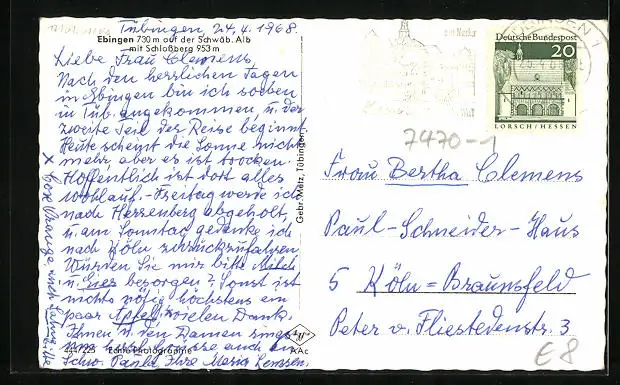 Tübingen, 24.4.1968.
Ebingen 730 m auf der Schwäb. Alb
mit Schloßberg 953 m
Liebe Frau Clemens,
Nach den herrlichen Tagen
in Ebingen bin ich soeben
in Tüb. angekommen, u. der
zweite Teil der Reise beginnt
Heute scheint die Sonne nicht
mehr, aber es ist trocken.
Hoffentlich ist dort alles
wohlauf. - Freitag werde ich
nach Herrenberg abgeholt,
u. am Sonntag gedenke ich
nach Köln zurückzufahren
Würden Sie mir bitte Milch
u. Eier besorgen? Sonst ist
nichts nötig, höchstens ein
paar Äpfel. Vielen Dank.
Ihnen u. den Damen
herzl. Grüsse auch an
Schw. Paula Ihre Maria
44/225 Echte Photographie
AAc
Gebr. Metz, Tübingen
am Neckar
Deutsche Bundespost
20
LORSCH / HESSEN
7470-1
Frau Bertha Clemens
Paul-Schneider-Haus
5 Köln=Braunsfeld
Peter v. Fliestedenstr. 3
€8